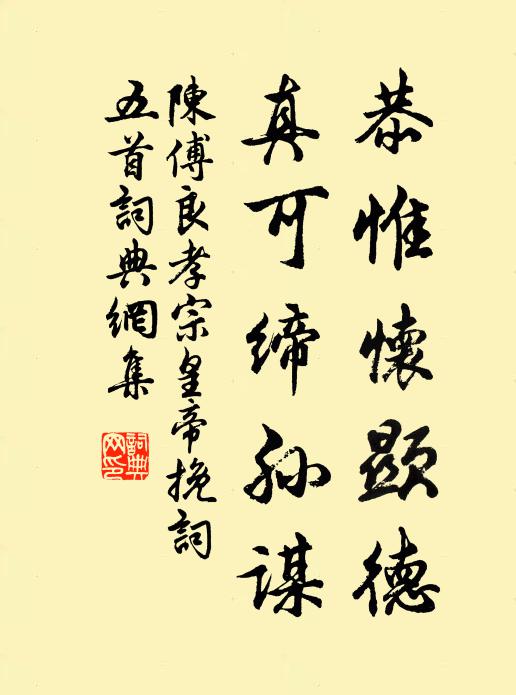 恭惟懷顯德
真可締孙謀
陳傅良孝宗皇帝挽詞
五首詞典網集
詞典网印